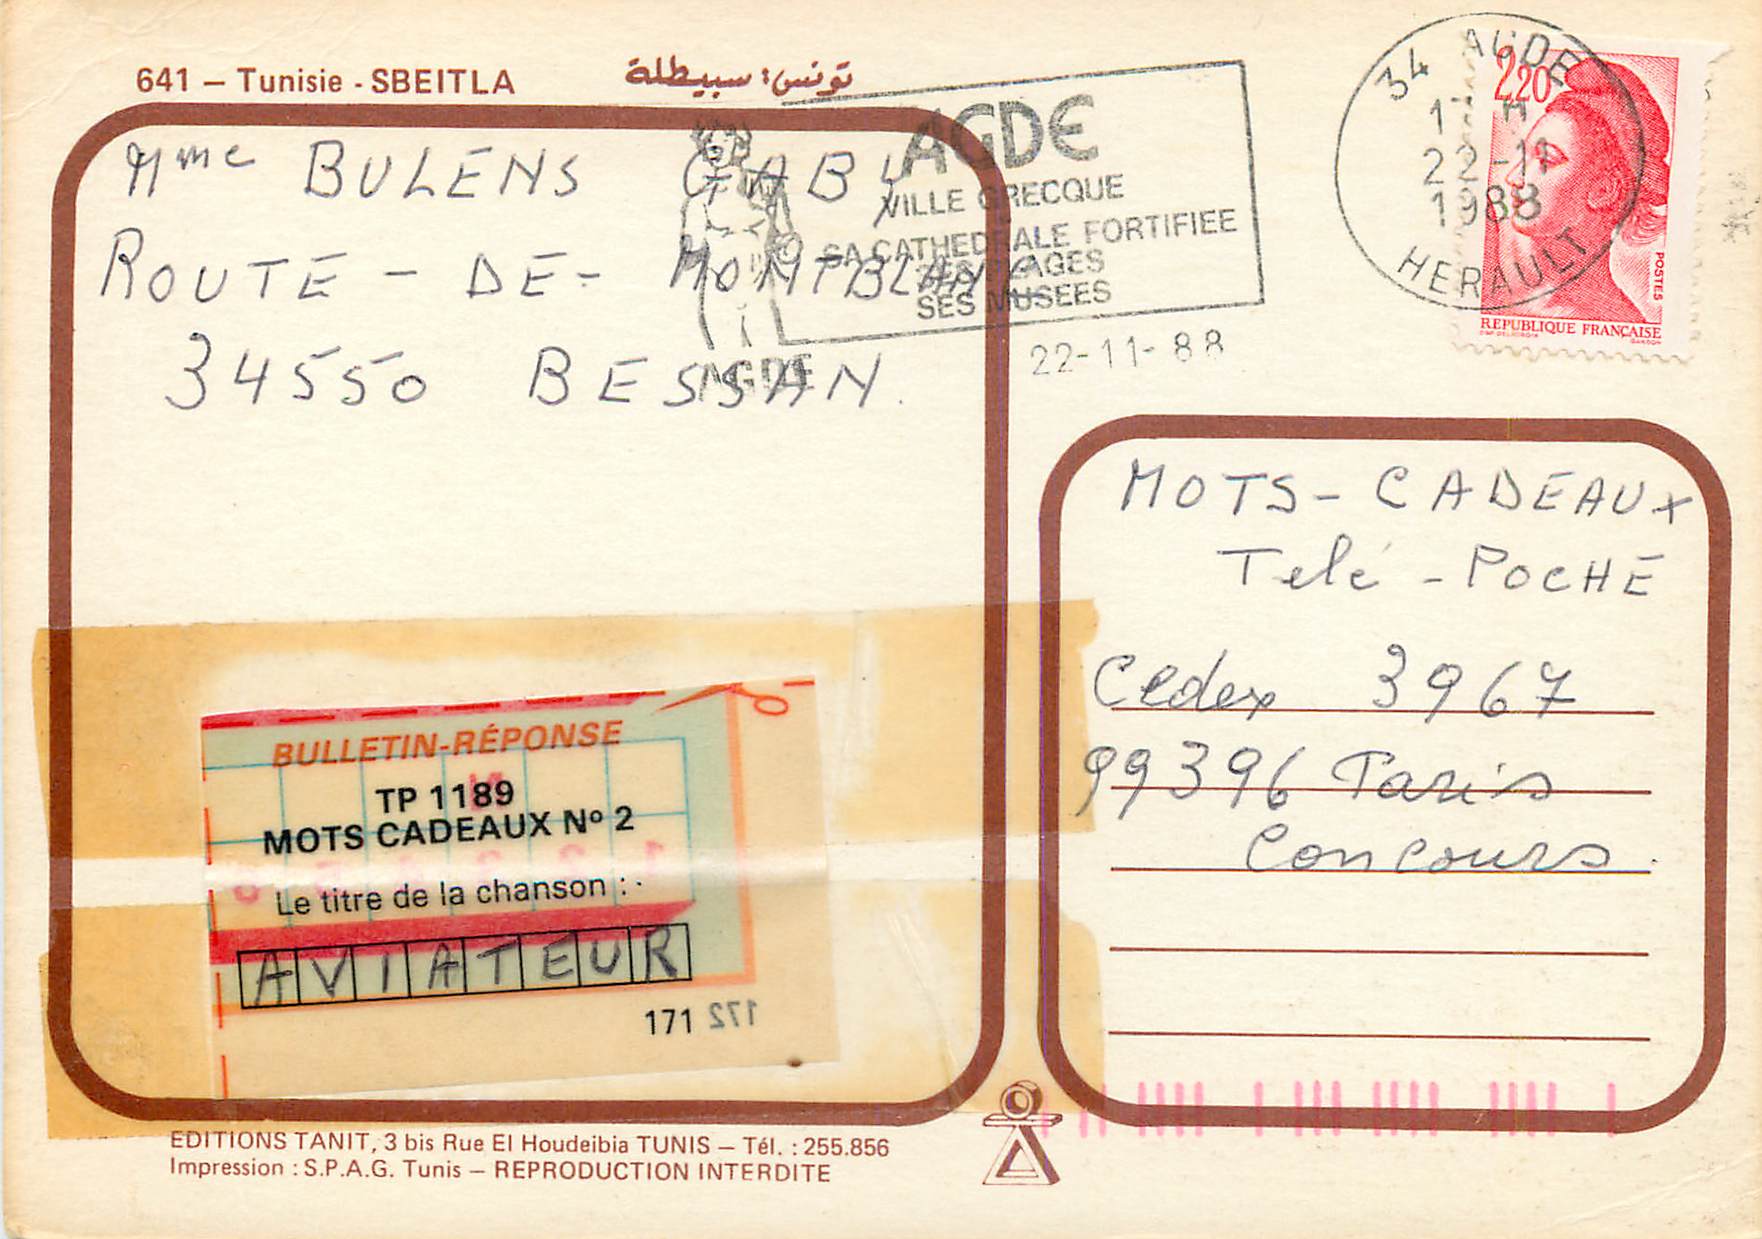 641 – Tunisie - SBEITLA
تونس: سبيطلة
Mme BULENS GABY
ROUTE - DE - MONTBLANC
34550 BESSAN.
AGDE
VILLE GRECQUE
SA CATHEDRALE FORTIFIEE
SES PLAGES
SES MUSEES
AGDE
22-11-88
34 AGDE
22-11
1988
HERAULT
2,20
POSTES
REPUBLIQUE FRANÇAISE
MOTS - CADEAUX
Telé - POCHE
Cedex 3967
99396 Paris
Concours.
BULLETIN-RÉPONSE
TP 1189
MOTS CADEAUX Nº 2
Le titre de la chanson :
AVIATEUR
171 172
EDITIONS TANIT, 3 bis Rue El Houdeibia TUNIS – Tél. : 255.856
Impression : S.P.A.G. Tunis – REPRODUCTION INTERDITE